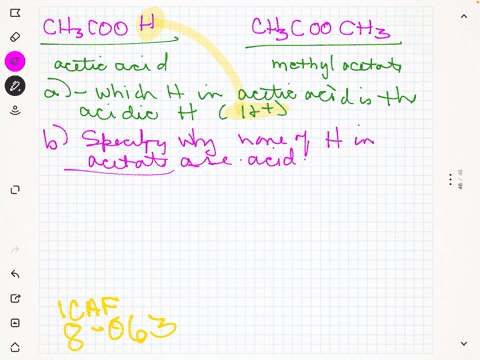 CH3COO H CH3COO CH3
acetic acid methyl acetate
a) - which H in acetic acid is the
acidic H (H+)
b) Specify why none of H in
acetate are acid.
1CAF
8-063
46 / 46